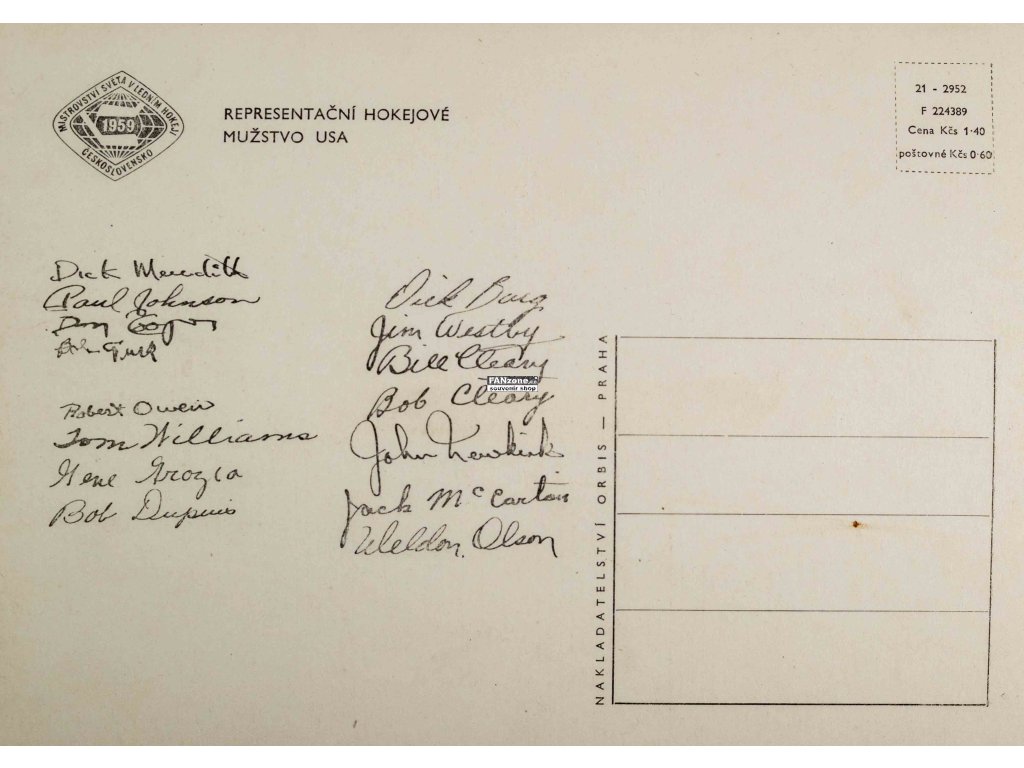 MISTROVSTVÍ SVĚTA V LEDNÍM HOKEJI
1959
ČESKOSLOVENSKO
REPRESENTAČNÍ HOKEJOVÉ
MUŽSTVO USA
21 - 2952
F 224389
Cena Kčs 1·40
poštovné Kčs 0·60
Dick Meredith
Paul Johnson
Robert Owen
Tom Williams
Gene Grazia
Bob Dupuis
Dick Burg
Jim Westby
Bill Cleary
Bob Cleary
John Newkirk
Jack McCartan
Weldon Olson
FANzone.cz
souvenir shop
NAKLADATELSTVÍ ORBIS — PRAHA